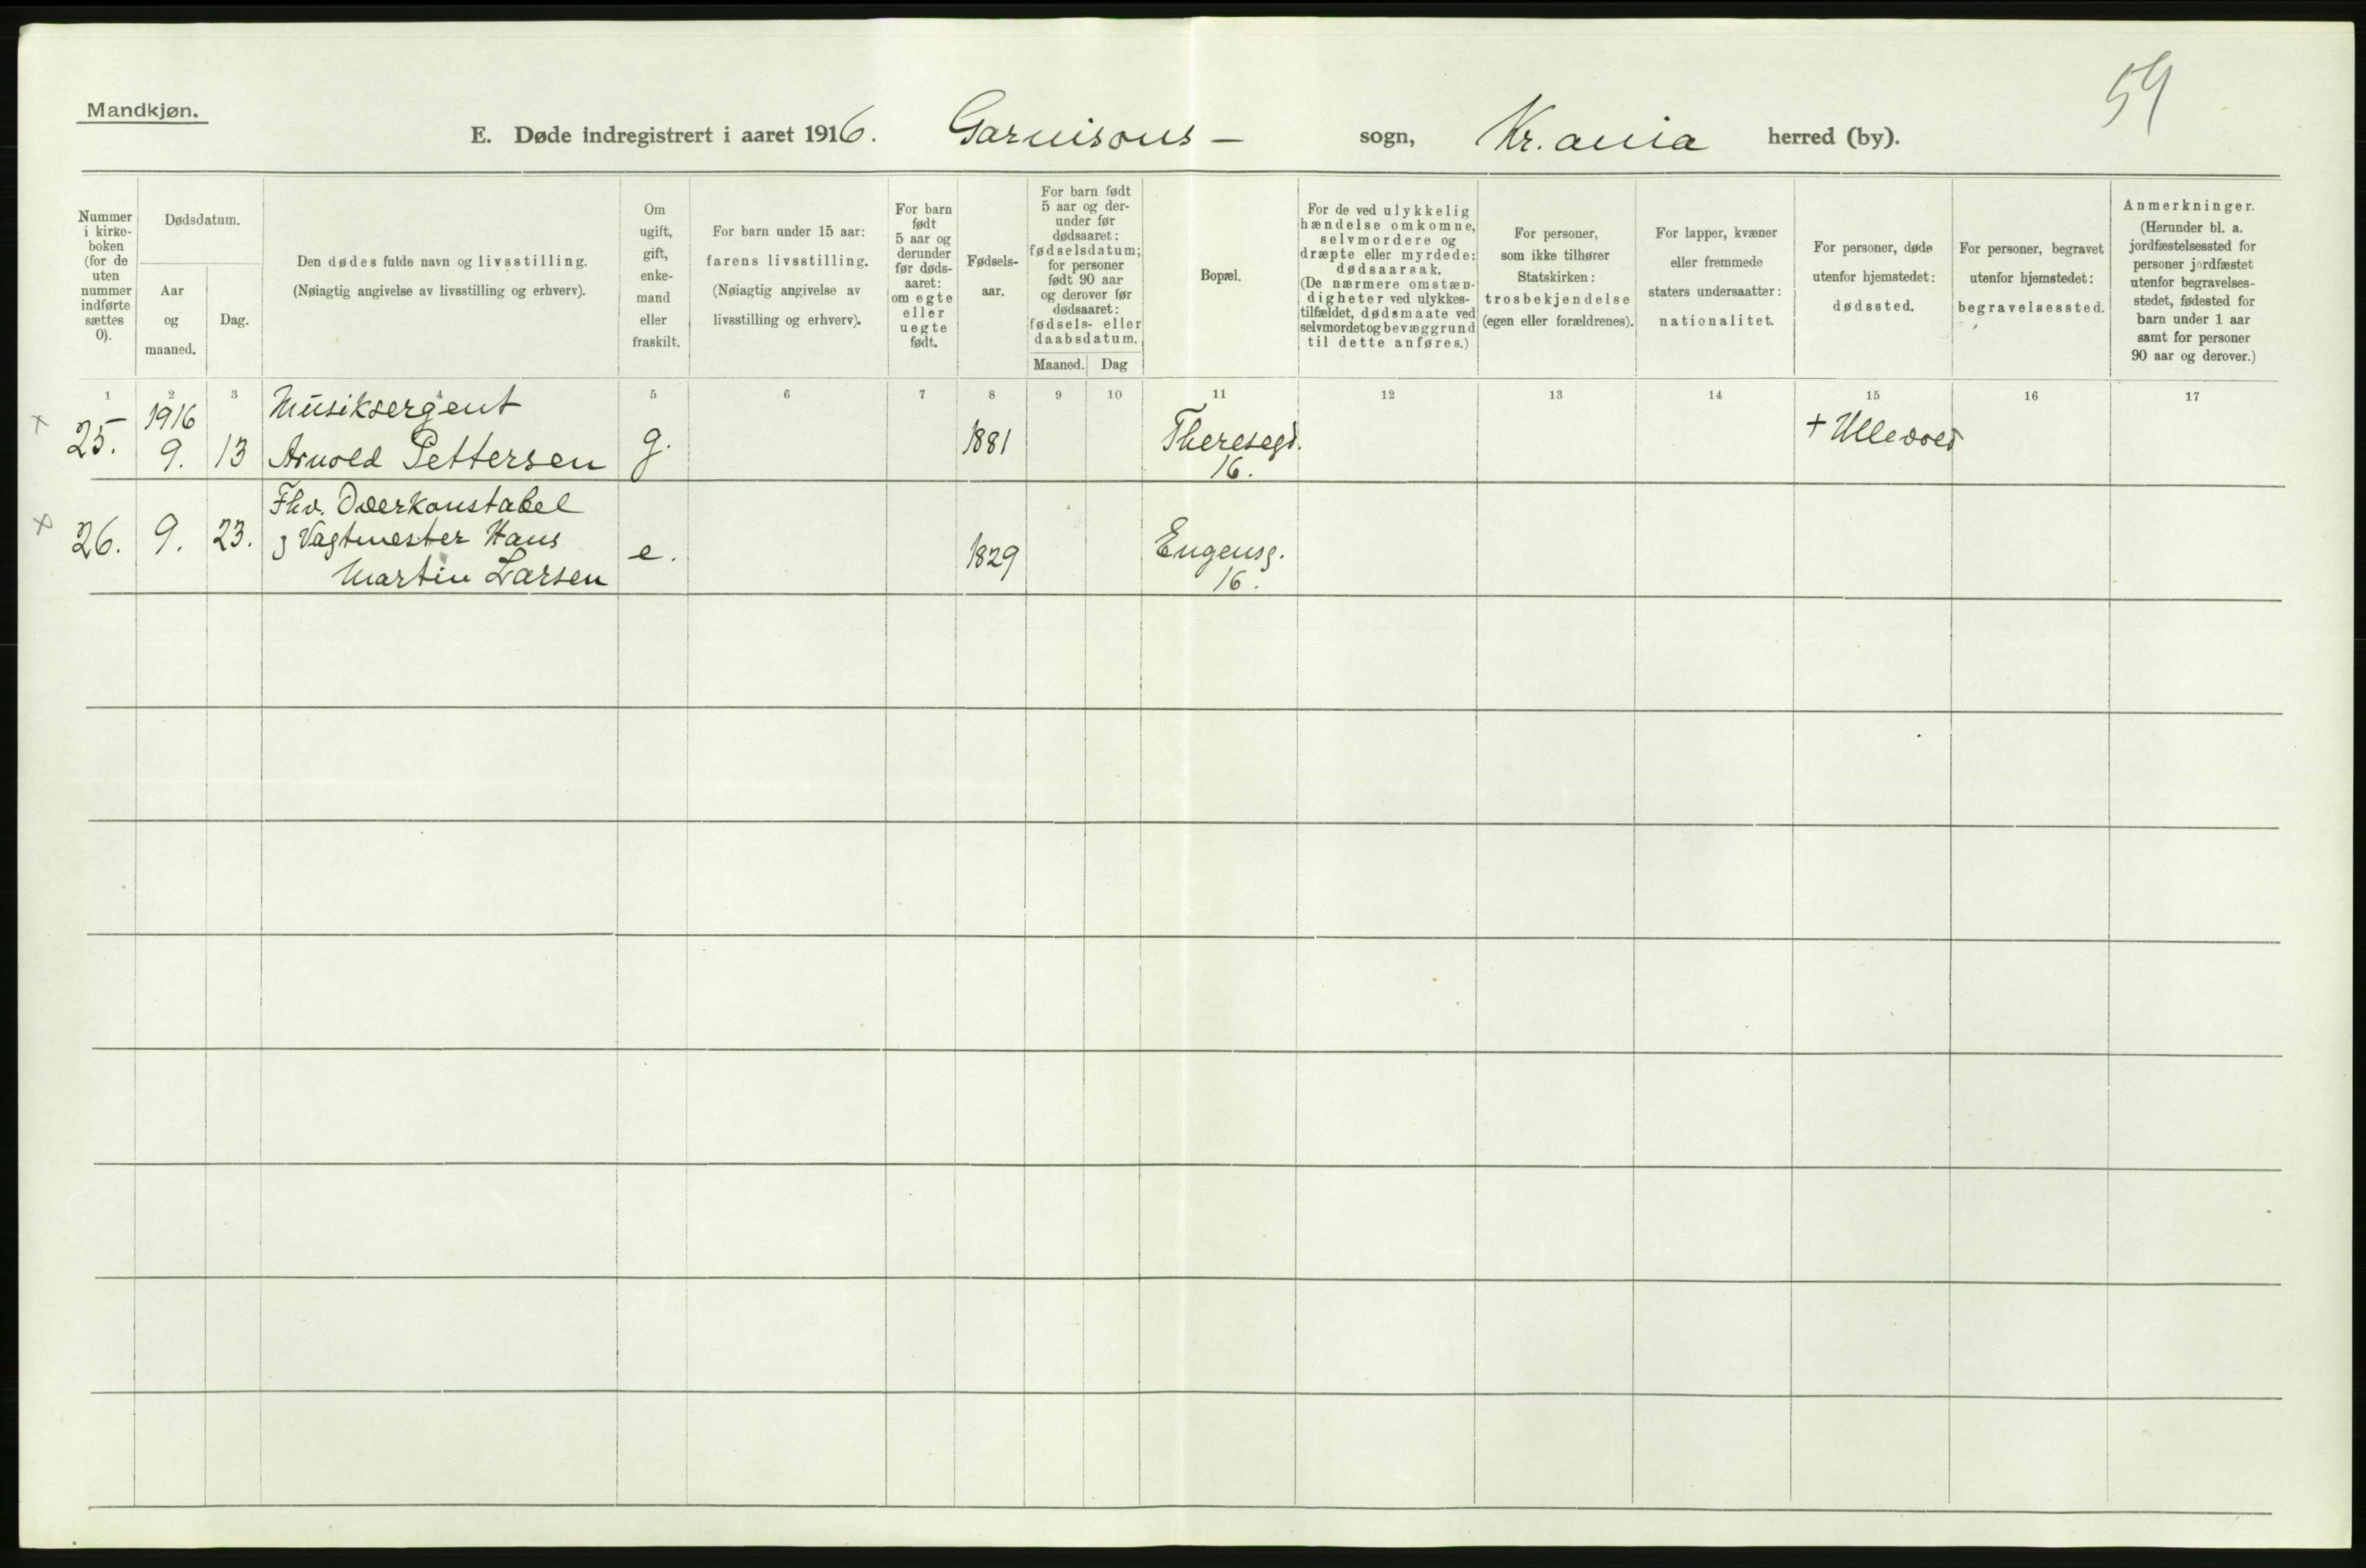 Mandkjøn.
59
E. Døde indregistrert i aaret 1916. Garnisons- sogn, Kr.ania herred (by).
Nummer
i kirke-
boken
(for de
uten
nummer
indførte
sættes
0).
Dødsdatum.
Aar
og
maaned.
Dag.
Den dødes fulde navn og livsstilling.
(Nøiagtig angivelse av livsstilling og erhverv).
Om
ugift,
gift,
enke-
mand
eller
fraskilt.
For barn under 15 aar:
farens livsstilling.
(Nøiagtig angivelse av
livsstilling og erhverv).
For barn
født
5 aar og
derunder
før døds-
aaret:
om egte
eller
uegte
født.
Fødsels-
aar.
For barn født
5 aar og der-
under før
dødsaaret:
fødselsdatum;
for personer
født 90 aar
og derover før
dødsaaret:
fødsels- eller
daabsdatum.
Maaned. Dag
Bopæl.
For de ved ulykkelig
hændelse omkomne,
selvmordere og
dræpte eller myrdede:
dødsaarsak.
(De nærmere omstæn-
digheter ved ulykkes-
tilfældet, dødsmaate ved
selvmordet og bevæggrund
til dette anføres.)
For personer,
som ikke tilhører
Statskirken:
trosbekjendelse
(egen eller forældrenes).
For lapper, kvæner
eller fremmede
staters undersaatter:
nationalitet.
For personer, døde
utenfor hjemstedet:
dødssted.
For personer, begravet
utenfor hjemstedet:
begravelsessted.
Anmerkninger.
(Herunder bl. a.
jordfæstelsessted for
personer jordfæstet
utenfor begravelses-
stedet, fødested for
barn under 1 aar
samt for personer
90 aar og derover.)
1 2 3 4 5 6 7 8 9 10 11 12 13 14 15 16 17
1916 Musiksergent
x 25. 9. 13 Arnold Pettersen g. 1881 Theresegt. + Ullevold
16.
Fhv. Overkonstabel
x 26. 9. 23. og Vagtmester Hans e. 1829 Eugensg.
Martin Larsen 16.